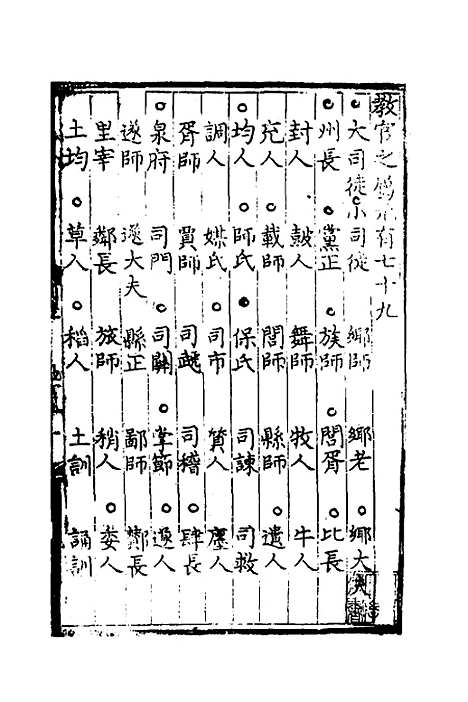 教官之屬凡有七十九
大司徒 小司徒 鄉師 鄉老 鄉大夫
州長 黨正 族師 閭胥 比長
封人 鼓人 舞師 牧人 牛人
充人 載師 閭師 縣師 遺人
均人 師氏 保氏 司諫 司救
調人 媒氏 司市 質人 廛人
胥師 賈師 司虣 司稽 肆長
泉府 司門 司關 掌節 遂人
遂師 遂大夫 縣正 鄙師 酇長
里宰 鄰長 旅師 稍人 委人
土均 草人 稻人 土訓 誦訓